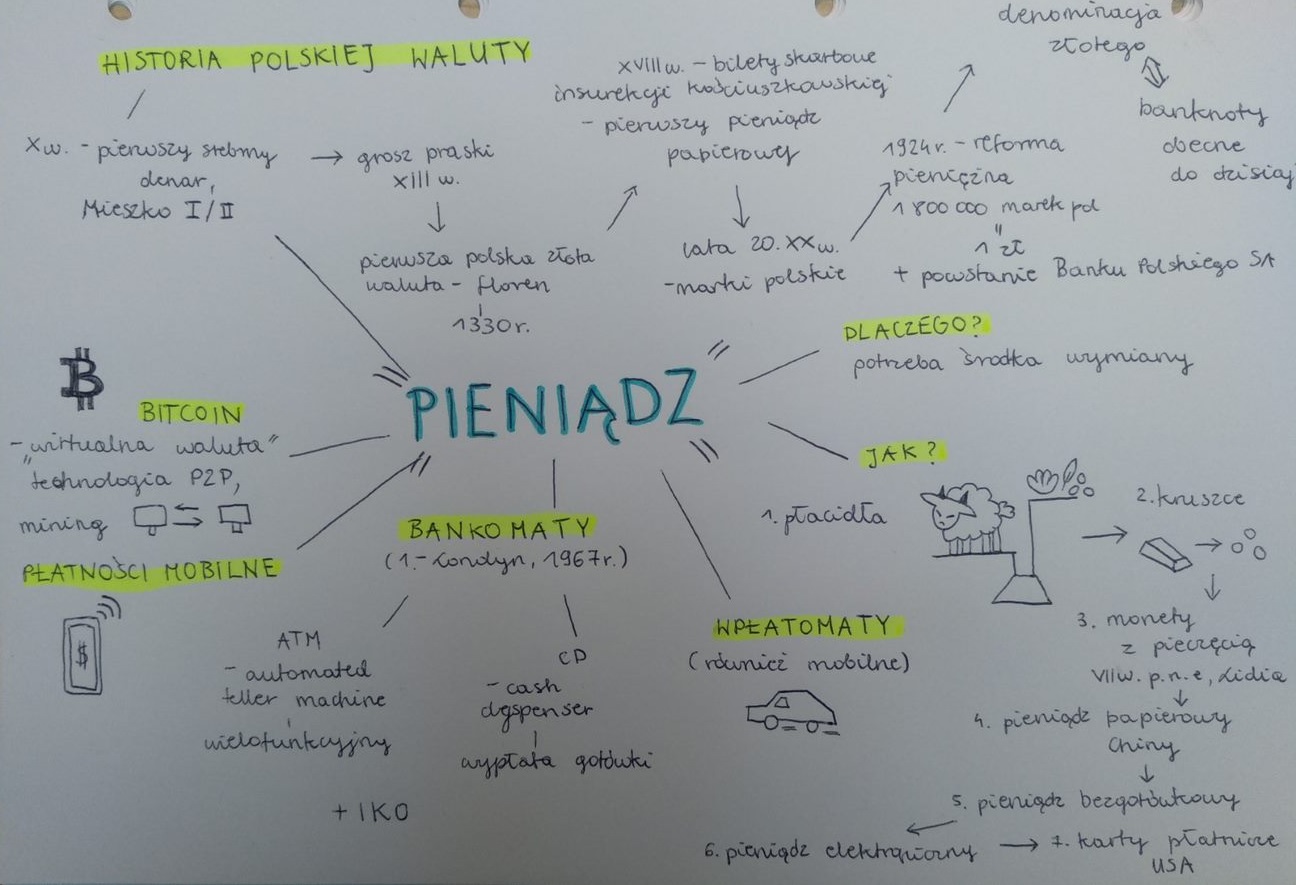 HISTORIA POLSKIEJ WALUTY
Xw. - pierwszy srebrny
denar,
Mieszko I/II
grosz praski
XIII w.
pierwsza polska złota
waluta - floren
1330r.
XVIII w. - bilety skarbowe
insurekcji kościuszkowskiej
- pierwszy pieniądz
papierowy
lata 20. XX w.
- marki polskie
1924r. - reforma
pieniężna
1 800 000 marek pol
"
1 zł
+ powstanie Banku Polskiego SA
denominacja
złotego
banknoty
obecne
do dzisiaj
PIENIĄDZ
DLACZEGO?
potrzeba środka wymiany
JAK?
1. płacidła
2. kruszce
3. monety
z pieczęcią
VII w. p.n.e, Lidia
4. pieniądz papierowy
Chiny
5. pieniądz bezgotówkowy
6. pieniądz elektroniczny
7. karty płatnicze
USA
BITCOIN
- „wirtualna waluta"
technologia P2P,
mining
PŁATNOŚCI MOBILNE
$
BANKOMATY
(1. - Londyn, 1967r.)
ATM
- automated
teller machine
wielofunkcyjny
CD
- cash
dyspenser
wypłata gotówki
+ IKO
WPŁATOMATY
(również mobilne)